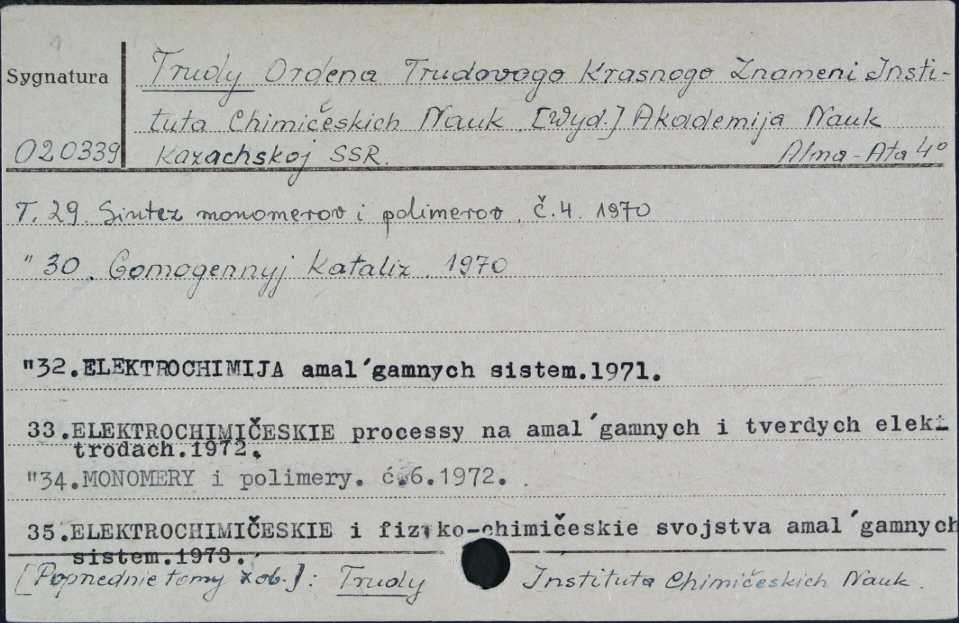 Sygnatura
Trudy Ordena Trudovogo Krasnogo Znameni Insti-
tuta Chimičeskich Nauk. [Wyd.] Akademija Nauk
020339 Kazachskoj SSR. Alma-Ata 4°
T. 29. Sintez monomerov i polimerov. č.4. 1970
" 30. Gomogennyj Kataliz. 1970
"32.ELEKTROCHIMIJA amal´gamnych sistem.1971.
33.ELEKTROCHIMIČESKIE processy na amal´gamnych i tverdych elek-
trodach.1972.
"34.MONOMERY i polimery. ć.6.1972.
35.ELEKTROCHIMIČESKIE i fiziko-chimičeskie svojstva amal´gamnych
sistem.1973.
[Poprzednie tomy zob.]: Trudy Instituta Chimičeskich Nauk.